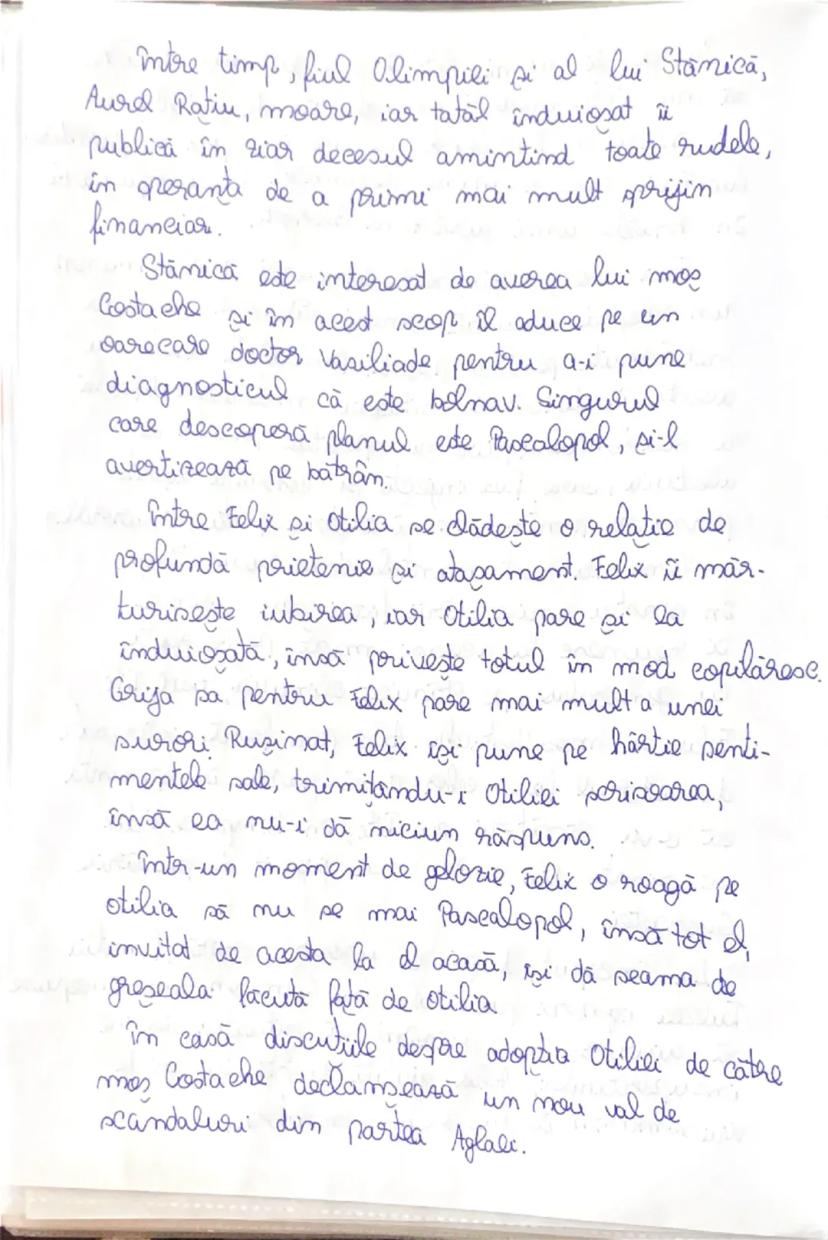 Între timp, fiul Olimpiei și al lui Stănică,
Aurel Rațiu, moare, iar tatăl înduioșat îi
publică în ziar decesul amintind toate rudele,
în speranța de a primi mai mult sprijin
financiar.
Stănică este interesat de averea lui moș
Costache și în acest scop îl aduce pe un
oarecare doctor Vasiliade pentru a-i pune
diagnosticul că este bolnav. Singurul
care descoperă planul este Pascalopol, și-l
avertizează pe bătrân.
Între Felix și Otilia se clădește o relație de
profundă prietenie și atașament. Felix îi măr-
turisește iubirea, iar Otilia pare și la
înduioșată, însă privește totul în mod copilăresc.
Grija sa pentru Felix pare mai mult a unei
surori. Rușinat, Felix își pune pe hârtie senti-
mentele sale, trimițându-i Otiliei scrisoarea,
însă ea nu-i dă niciun răspuns.
Într-un moment de gelozie, Felix o roagă pe
Otilia să nu se mai Pascalopol, însă tot el,
invitat de acesta la el acasă, își dă seama de
greșeala făcută față de Otilia.
În casă discuțiile despre adopția Otiliei de către
moș Costache, declanșează un nou val de
scandaluri din partea Aglaei.